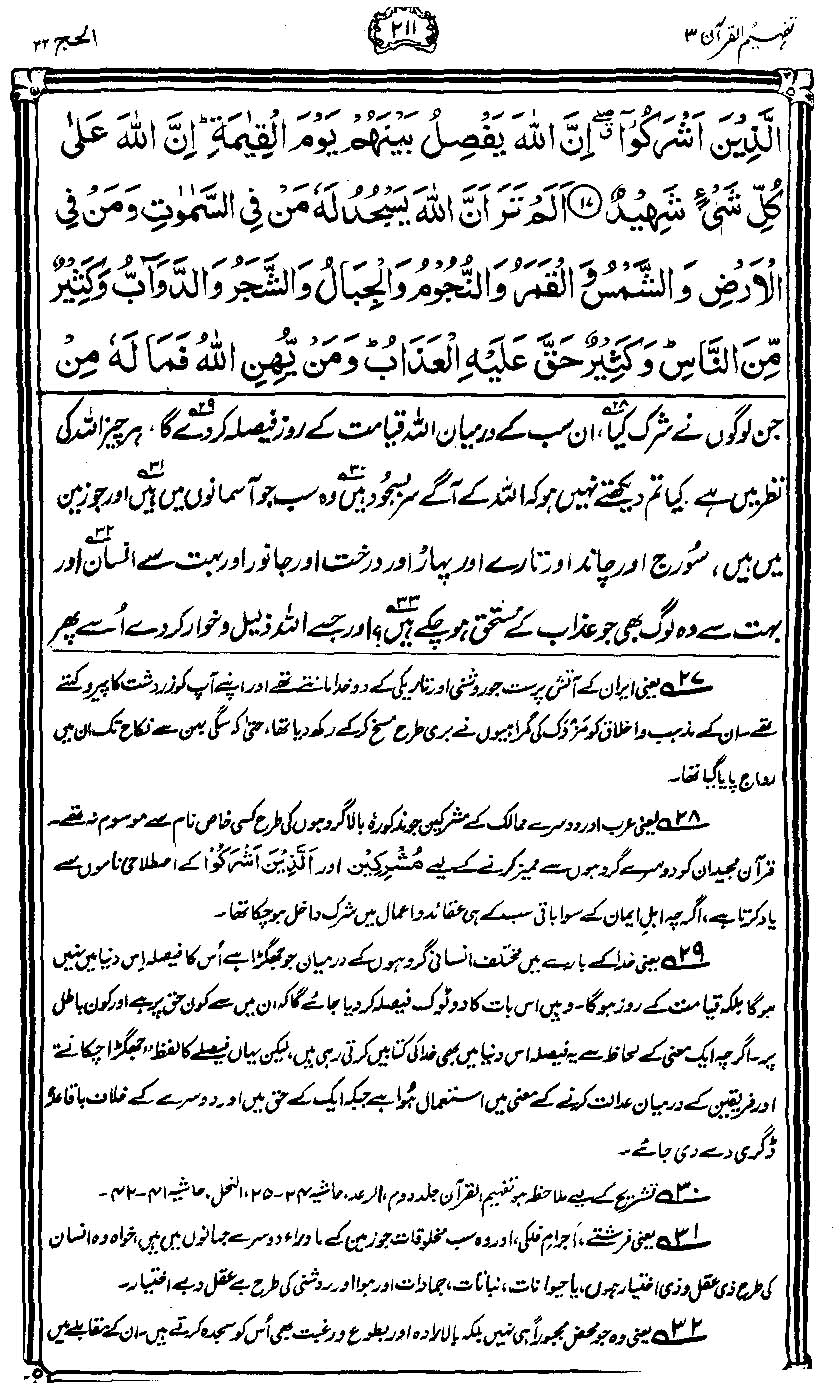 تفہیم القرآن ۳
۲۱۱
الحج ۲۲
الَّذِيْنَ اَشْرَكُوْۤا ۖۗ اِنَّ اللّٰهَ يَفْصِلُ بَيْنَهُمْ يَوْمَ الْقِيٰمَةِ ؕ اِنَّ اللّٰهَ عَلٰى
كُلِّ شَيْءٍ شَهِيْدٌ ﴿۱۷﴾ اَلَمْ تَرَ اَنَّ اللّٰهَ يَسْجُدُ لَهٗ مَنْ فِي السَّمٰوٰتِ وَمَنْ فِي
الْاَرْضِ وَالشَّمْسُ وَالْقَمَرُ وَالنُّجُوْمُ وَالْجِبَالُ وَالشَّجَرُ وَالدَّوَآبُّ وَكَثِيْرٌ
مِّنَ النَّاسِ ؕ وَكَثِيْرٌ حَقَّ عَلَيْهِ الْعَذَابُ ؕ وَمَنْ يُّهِنِ اللّٰهُ فَمَا لَهٗ مِنْ
جن لوگوں نے شرک کیا۲۸، ان سب کے درمیان اللہ قیامت کے روز فیصلہ کر دے گا۲۹، ہر چیز اللہ کی
نظر میں ہے۔ کیا تم دیکھتے نہیں ہو کہ اللہ کے آگے سربسجود ہیں۳۰ وہ سب جو آسمانوں میں ہیں۳۱ اور جو زمین
میں ہیں، سورج اور چاند اور تارے اور پہاڑ اور درخت اور جانور اور بہت سے انسان۳۲ اور
بہت سے وہ لوگ بھی جو عذاب کے مستحق ہو چکے ہیں۳۳؟ اور جسے اللہ ذلیل و خوار کر دے اُسے پھر
۲۷؎ یعنی ایران کے آتش پرست جو روشنی اور تاریکی کے دو خدا مانتے تھے اور اپنے آپ کو زردشت کا پیرو کہتے
تھے۔ ان کے مذہب و اخلاق کو مَزْدَک کی گمراہیوں نے بری طرح مسخ کر کے رکھ دیا تھا، حتیٰ کہ سگی بہن سے نکاح تک ان میں
رواج پا گیا تھا۔
۲۸؎ یعنی عرب اور دوسرے ممالک کے مشرکین جو مذکورۂ بالا گروہوں کی طرح کسی خاص نام سے موسوم نہ تھے۔
قرآن مجید ان کو دوسرے گروہوں سے ممیز کرنے کے لیے مُشْرِکِیْنَ اور اَلَّذِیْنَ اَشْرَکُوْا کے اصطلاحی ناموں سے
یاد کرتا ہے، اگرچہ اہلِ ایمان کے سوا باقی سب کے ہی عقائد و اعمال میں شرک داخل ہو چکا تھا۔
۲۹؎ یعنی خدا کے بارے میں مختلف انسانی گروہوں کے درمیان جو جھگڑا ہے اُس کا فیصلہ اِس دنیا میں نہیں
ہوگا بلکہ قیامت کے روز ہوگا۔ وہیں اس بات کا دو ٹوک فیصلہ کر دیا جائے گا کہ ان میں سے کون حق پر ہے اور کون باطل
پر۔ اگرچہ ایک معنی کے لحاظ سے یہ فیصلہ اس دنیا میں بھی خدا کی کتابیں کرتی رہی ہیں، لیکن یہاں فیصلے کا لفظ ”جھگڑا چکانے“
اور فریقین کے درمیان عدالت کرنے کے معنی میں استعمال ہُوا ہے جبکہ ایک کے حق میں اور دوسرے کے خلاف باقاعدہ
ڈگری دے دی جائے۔
۳۰؎ تشریح کے لیے ملاحظہ ہو تفہیم القرآن جلد دوم، الرعد، حاشیہ ۲۴-۲۵، النحل، حاشیہ ۴۱-۴۲۔
۳۱؎ یعنی فرشتے، اَجرامِ فلکی، اور وہ سب مخلوقات جو زمین کے ماوراء دوسرے جہانوں میں ہیں، خواہ وہ انسان
کی طرح ذی عقل و ذی اختیار ہوں، یا حیوانات، نباتات، جمادات اور ہوا اور روشنی کی طرح بے عقل و بے اختیار۔
۳۲؎ یعنی وہ جو محض مجبوراً ہی نہیں بلکہ بالارادہ اور بطوع و رغبت بھی اُس کو سجدہ کرتے ہیں۔ ان کے مقابلے میں